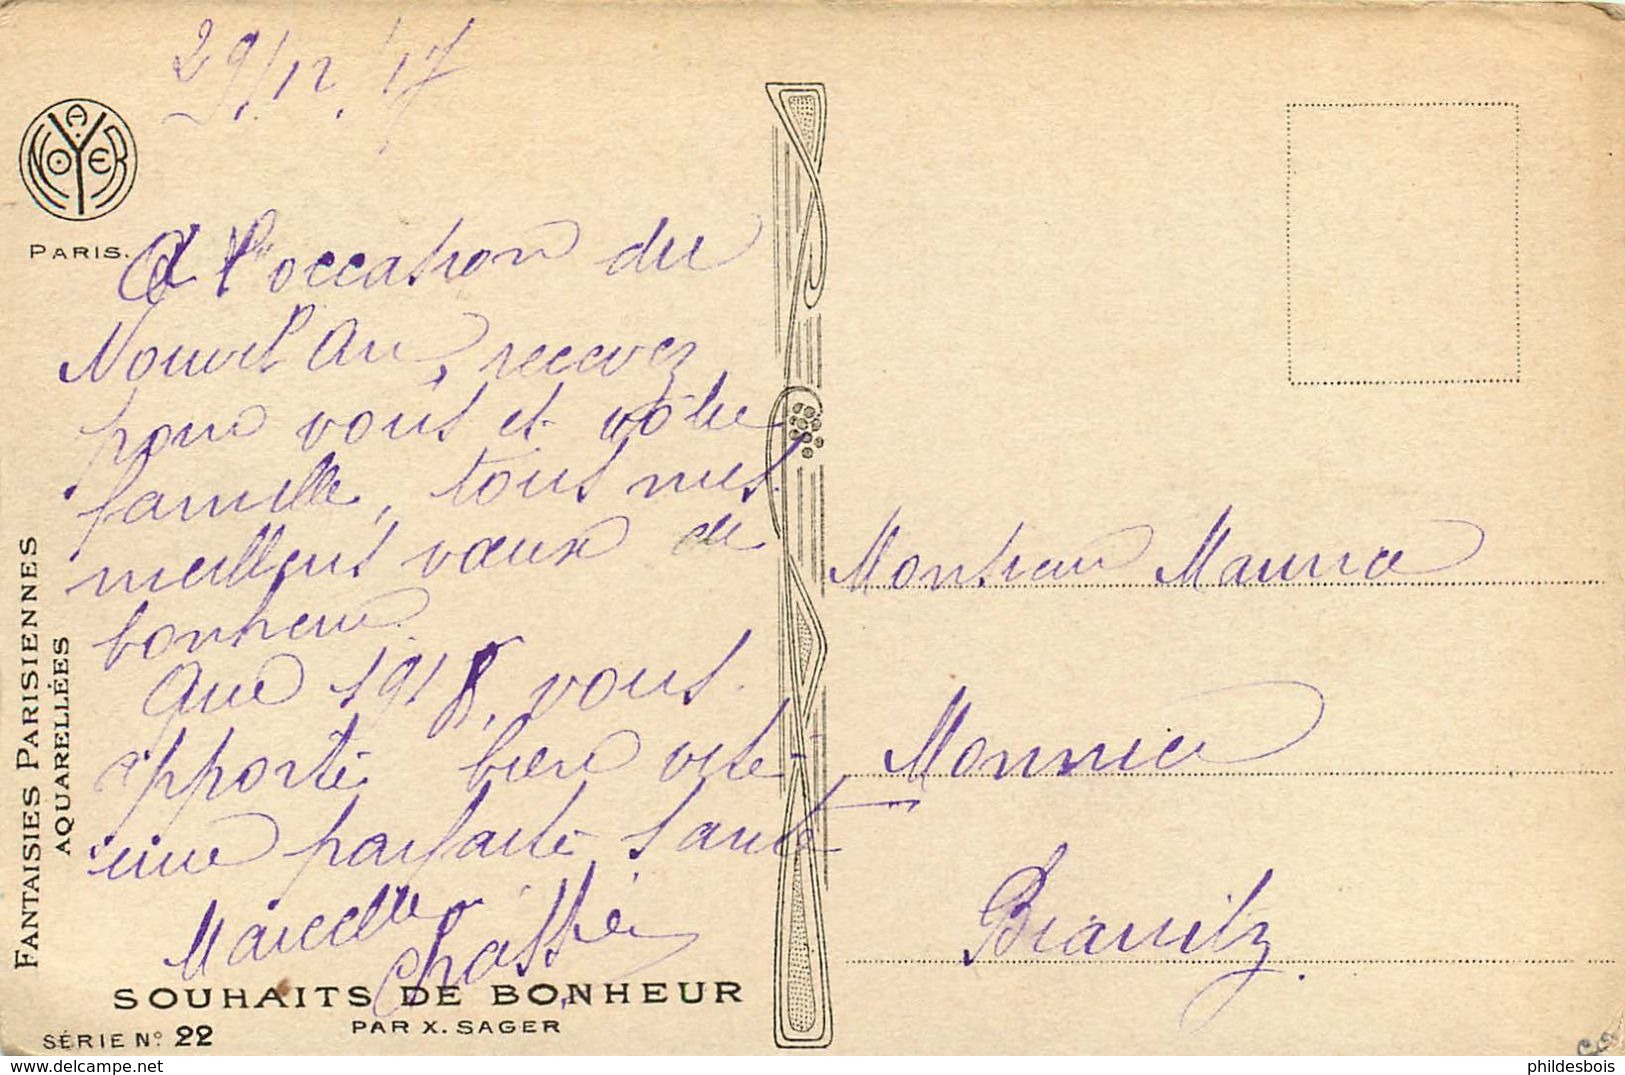 29/12/17
A. NOYER
PARIS.
A l'occasion du
Nouvel An, recevez
pour vous et votre
famille, tous mes
meilleurs vœux de
bonheur.
Que 1918, vous
apporte bien vite
une parfaite santé
Marcelle
SOUHAITS DE BONHEUR
PAR X. SAGER
SÉRIE N° 22
FANTAISIES PARISIENNES
AQUARELLÉES
Monsieur Maurice
Monnier
Biarritz.
www.delcampe.net
phildesbois